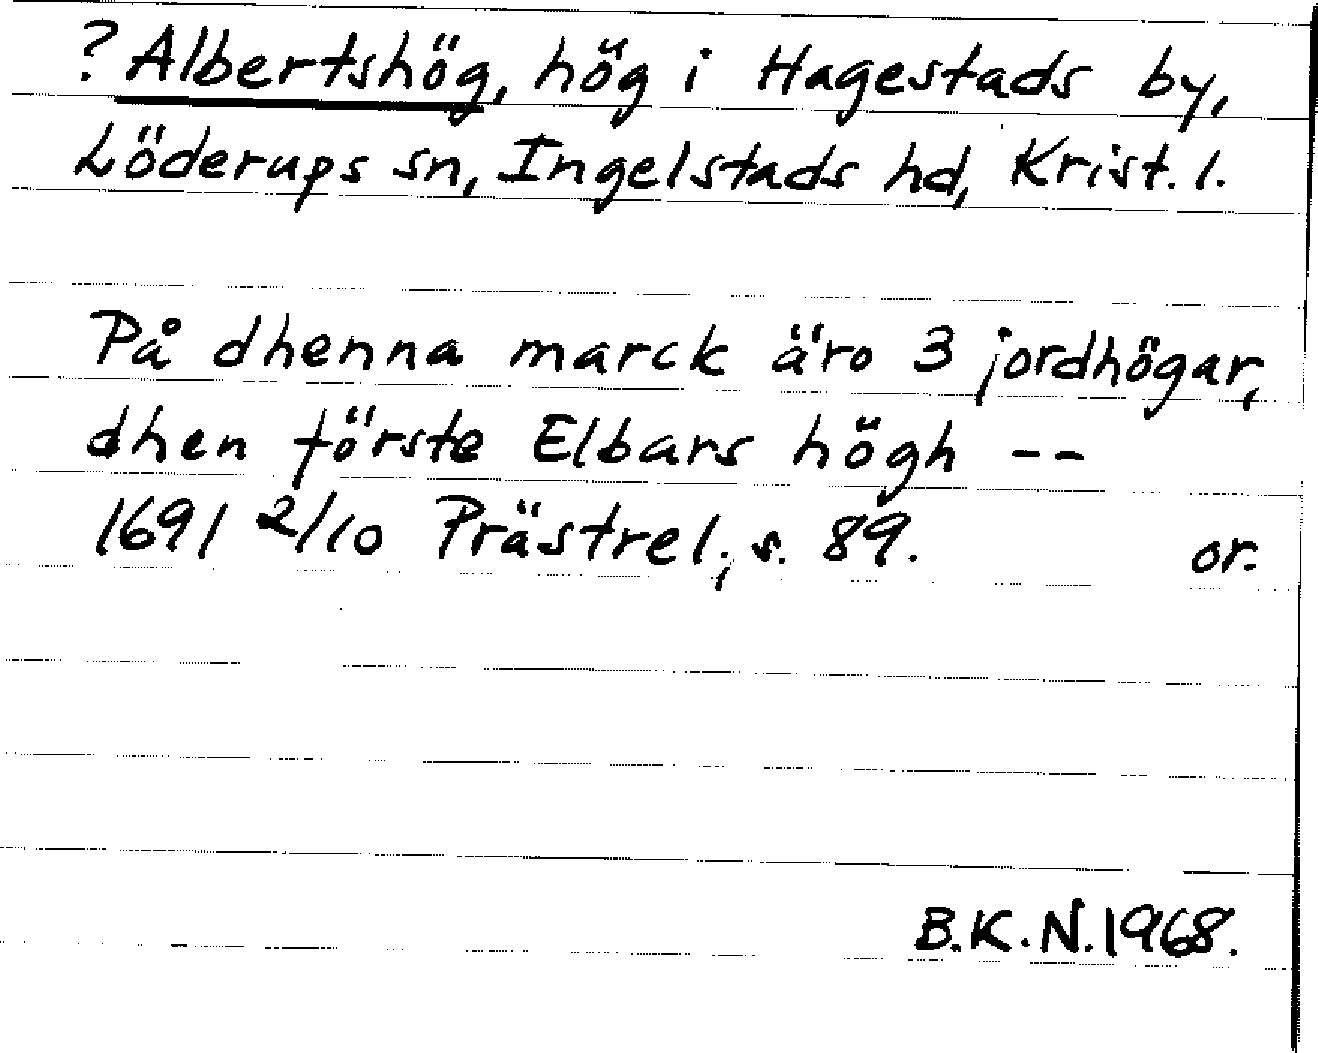 ? Albertshög, hög i Hagestads by,
Löderups sn, Ingelstads hd, Krist. l.
På dhenna marck äro 3 jordhögar,
dhen förste Elbars högh --
1691 2/10 Prästrel., s. 89. or.
B.K.N. 1968.